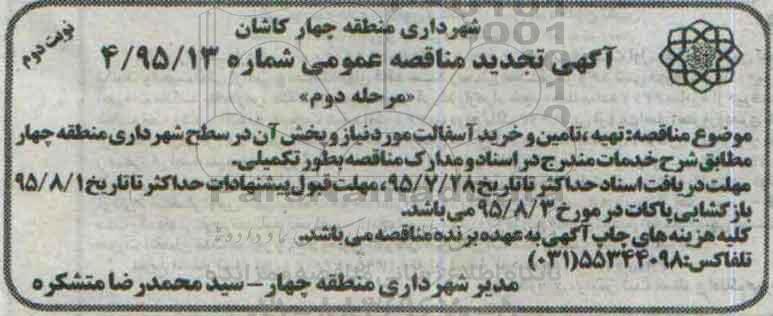 شهرداری منطقه چهار کاشان
نوبت دوم
آگهی تجدید مناقصه عمومی شماره ۴/۹۵/۱۳
«مرحله دوم»
موضوع مناقصه: تهیه، تامین و خرید آسفالت مورد نیاز و پخش آن در سطح شهرداری منطقه چهار
مطابق شرح خدمات مندرج در اسناد و مدارک مناقصه بطور تکمیلی.
مهلت دریافت اسناد حداکثر تا تاریخ ۹۵/۷/۲۸، مهلت قبول پیشنهادات حداکثر تا تاریخ ۹۵/۸/۱
بازگشایی پاکات در مورخ ۹۵/۸/۳ می باشد.
کلیه هزینه های چاپ آگهی به عهده برنده مناقصه می باشد.
تلفاکس: ۵۵۳۴۴۰۹۸(۰۳۱)
مدیر شهرداری منطقه چهار – سید محمدرضا متشکره